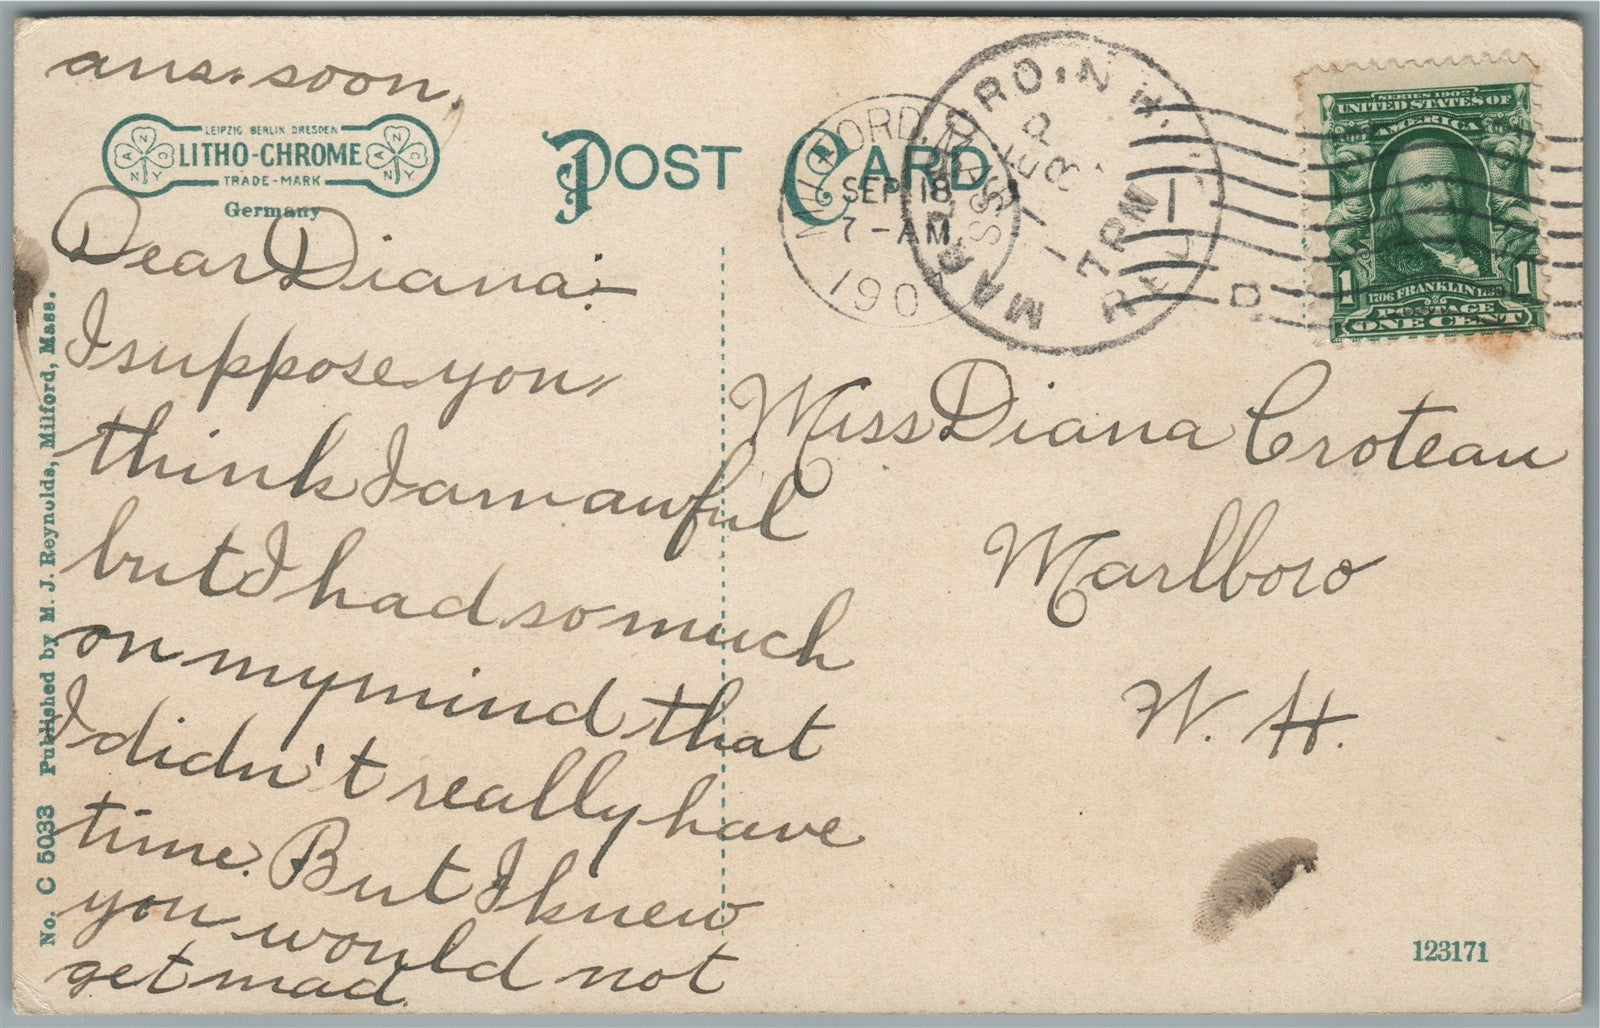 ans. soon.
LEIPZIG BERLIN DRESDEN
LITHO-CHROME
TRADE-MARK
Germany
POST CARD
MILFORD, MASS.
SEP 18
7-AM
190
MARLBORO, N.H.
SEP
18
7 PM
REC'D
SERIES 1902
UNITED STATES OF
AMERICA
1706 FRANKLIN 1790
POSTAGE
1 1
ONE CENT
Dear Diana:-
I suppose you
think I am awful
but I had so much
on my mind that
I didn't really have
time. But I knew
you would not
get mad.
Miss Diana Croteau
Marlboro
N. H.
No. C 5033 Published by M. J. Reynolds, Milford, Mass.
123171